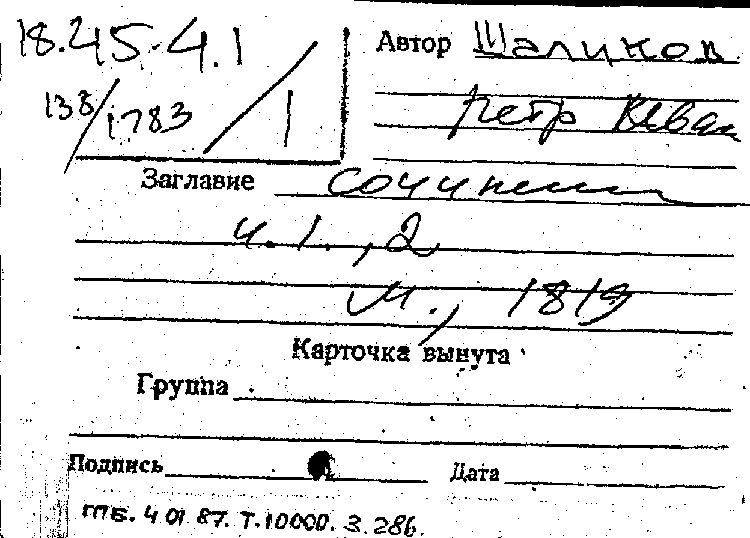 18.45.4.1
138/1783 / 1
Автор Шаликов
Петр Иван
Заглавие Сочинения
ч. 1., 2
М., 1819
Карточка вынута
Группа
Подпись Дата
ГПБ. 4 01 87. Т.10000. З. 286.